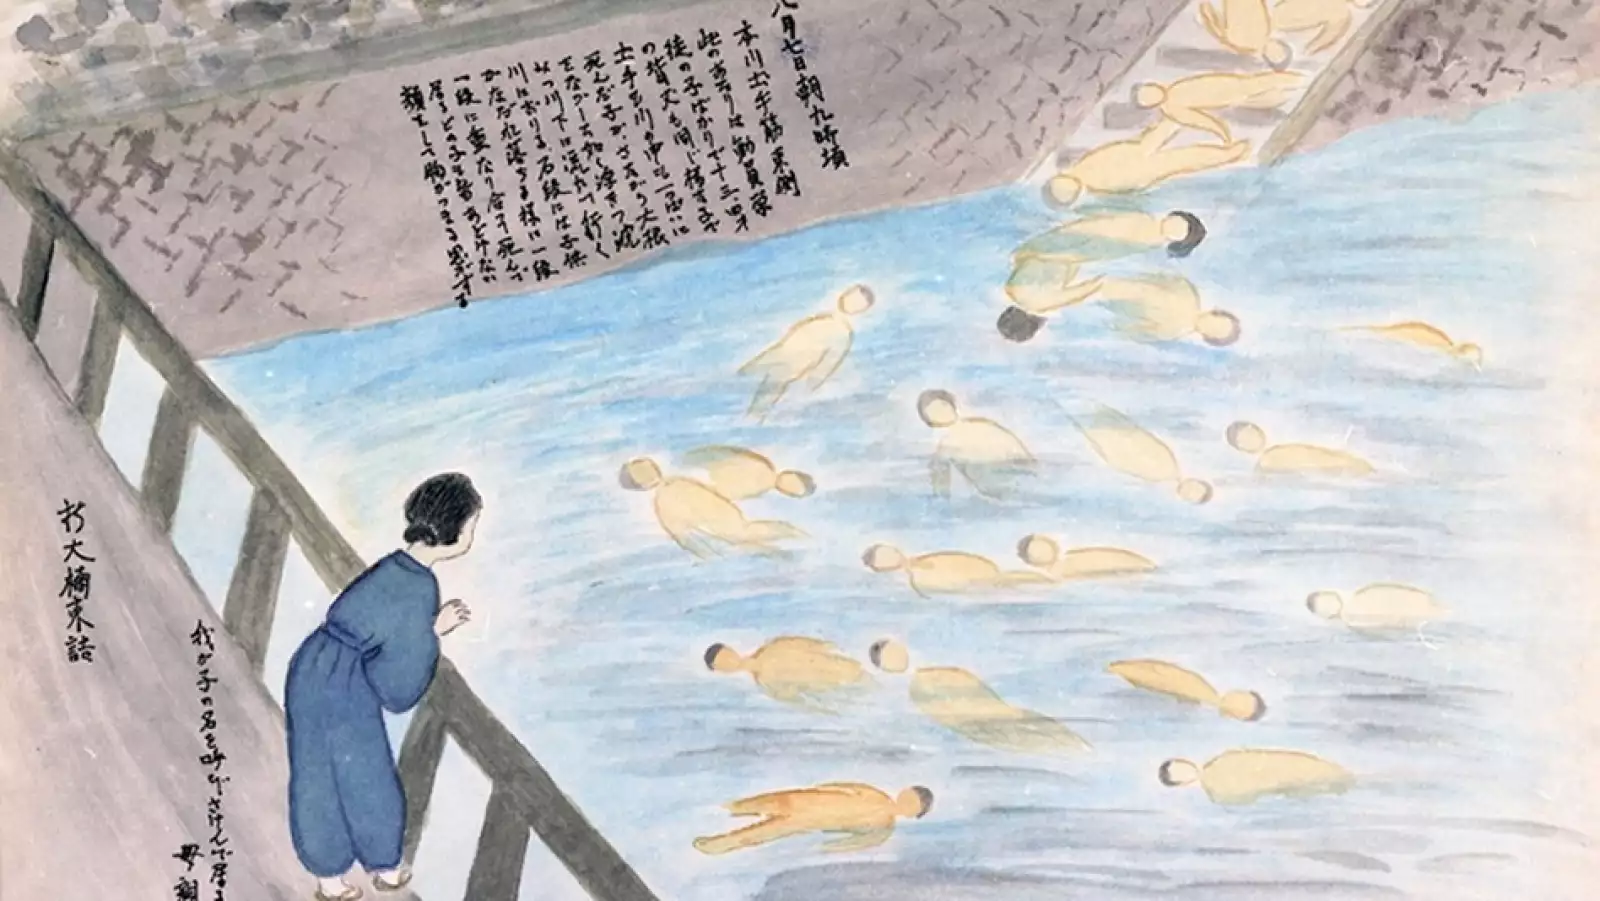 八月七日朝九時頃
本川土手筋東側
此の当りは動員学
徒の子ばかりで十三、四才
の背丈も同じ様な子で
土手も川の中も一ぱいに
死んだ子が、さながら大根
をながした如く浮きつ沈
みつ川下に流れて行く
川におりる石段には子供
がなだれ落ちる様に一段
一段に重なり合って死んで
居るどの子も皆あどけない
顔をして胸がつまる思がする
新大橋東詰
我が子の名を呼びさけんで居る
母親